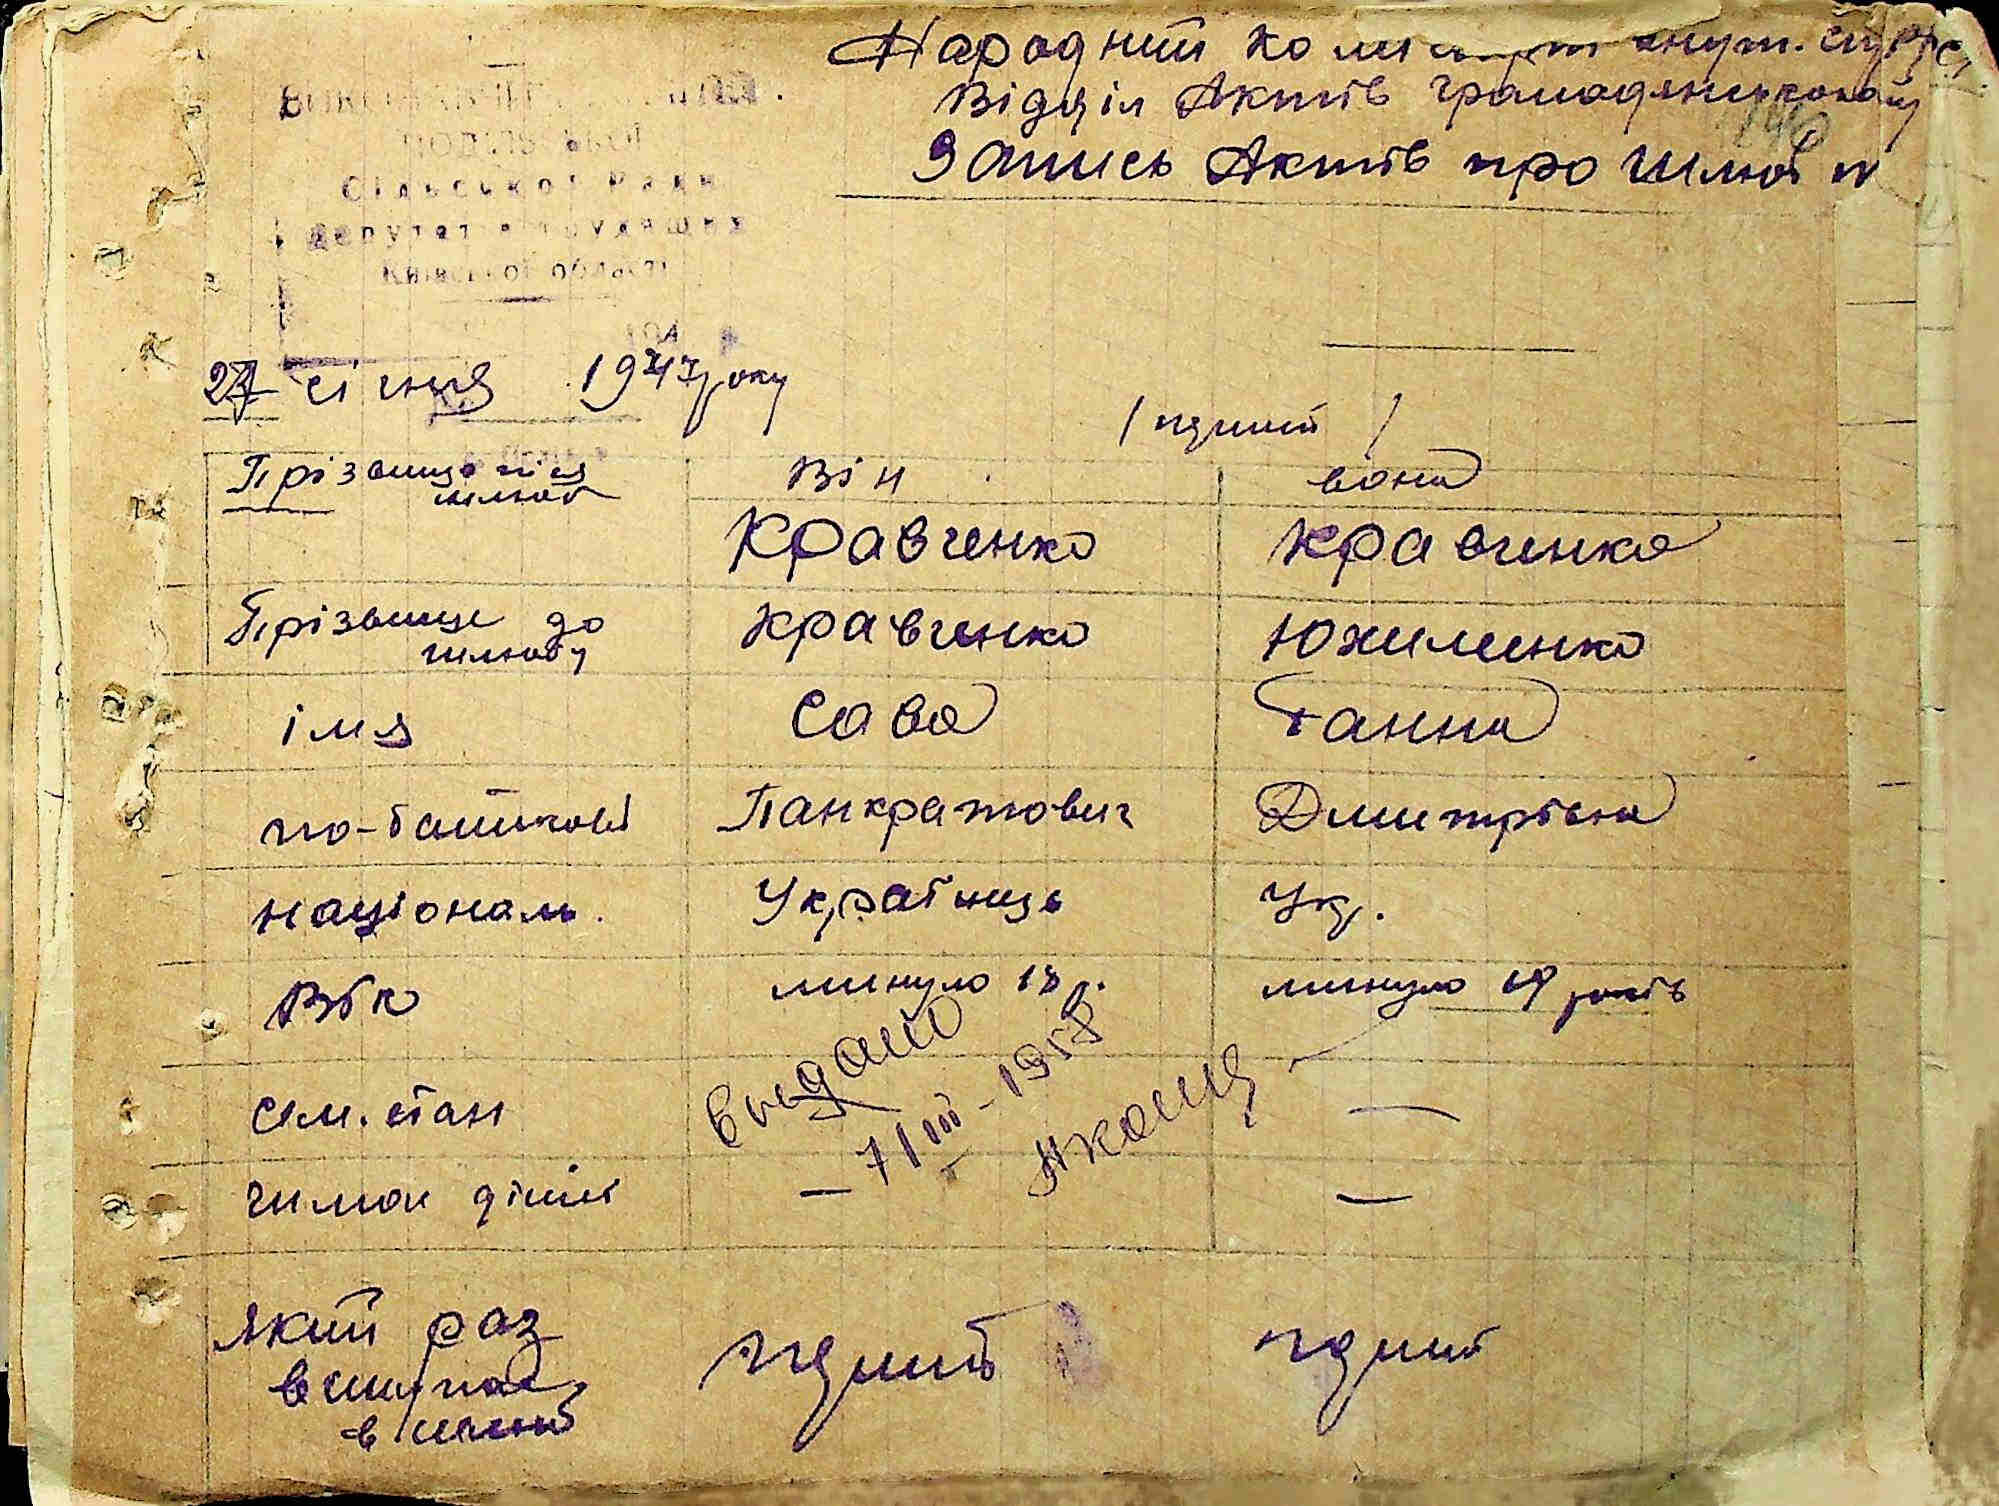 Народний комісаріат внут. справ
Відділ Актів громадянського
Запись Актів про шлюб №
Сільської Ради
депутатів трудящих
Київської області
194 р
27 січня 1947 року
/ перший /
Прізвище після шлюбу Він вона
Кравченко Кравченко
Прізвище до шлюбу Кравченко Юхименко
імя Сава Ганна
по-батькові Панкратович Дмитрівна
націоналн. Українець Укр.
Вік минуло 18 р. минуло 19 років
сім. стан — 
видано
7/III-1957
число дітей — —
який раз
вступає
в шлюб
перший перший